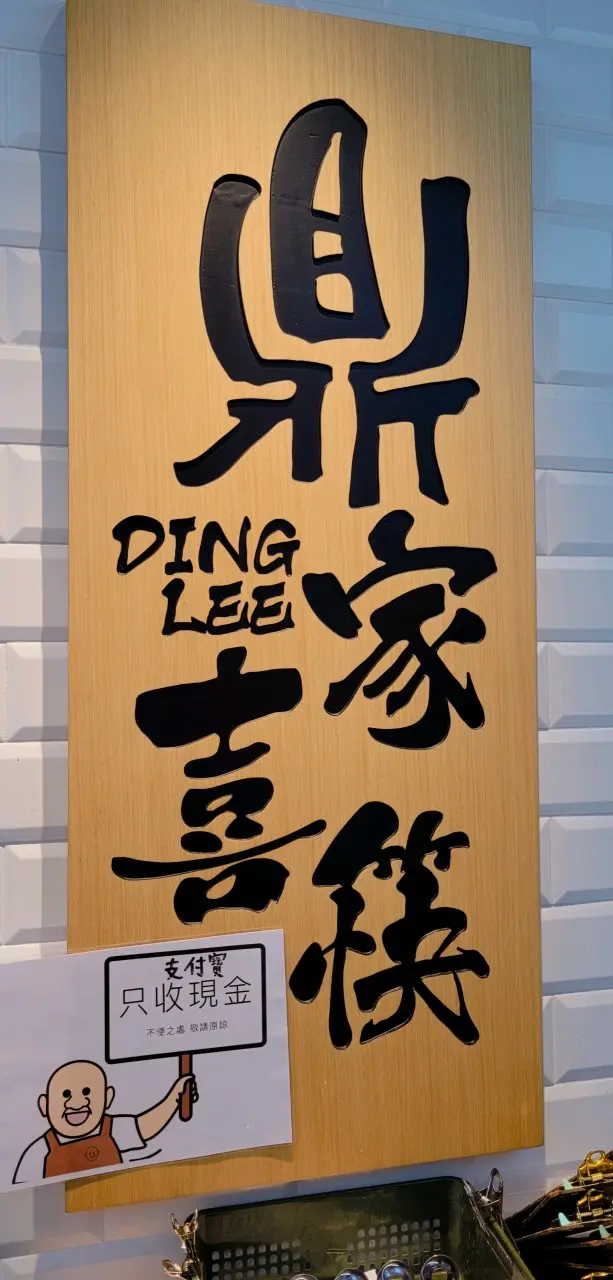 鼎
DING
LEE
家
喜
筷
支付寶
只收現金
不便之處 敬請原諒